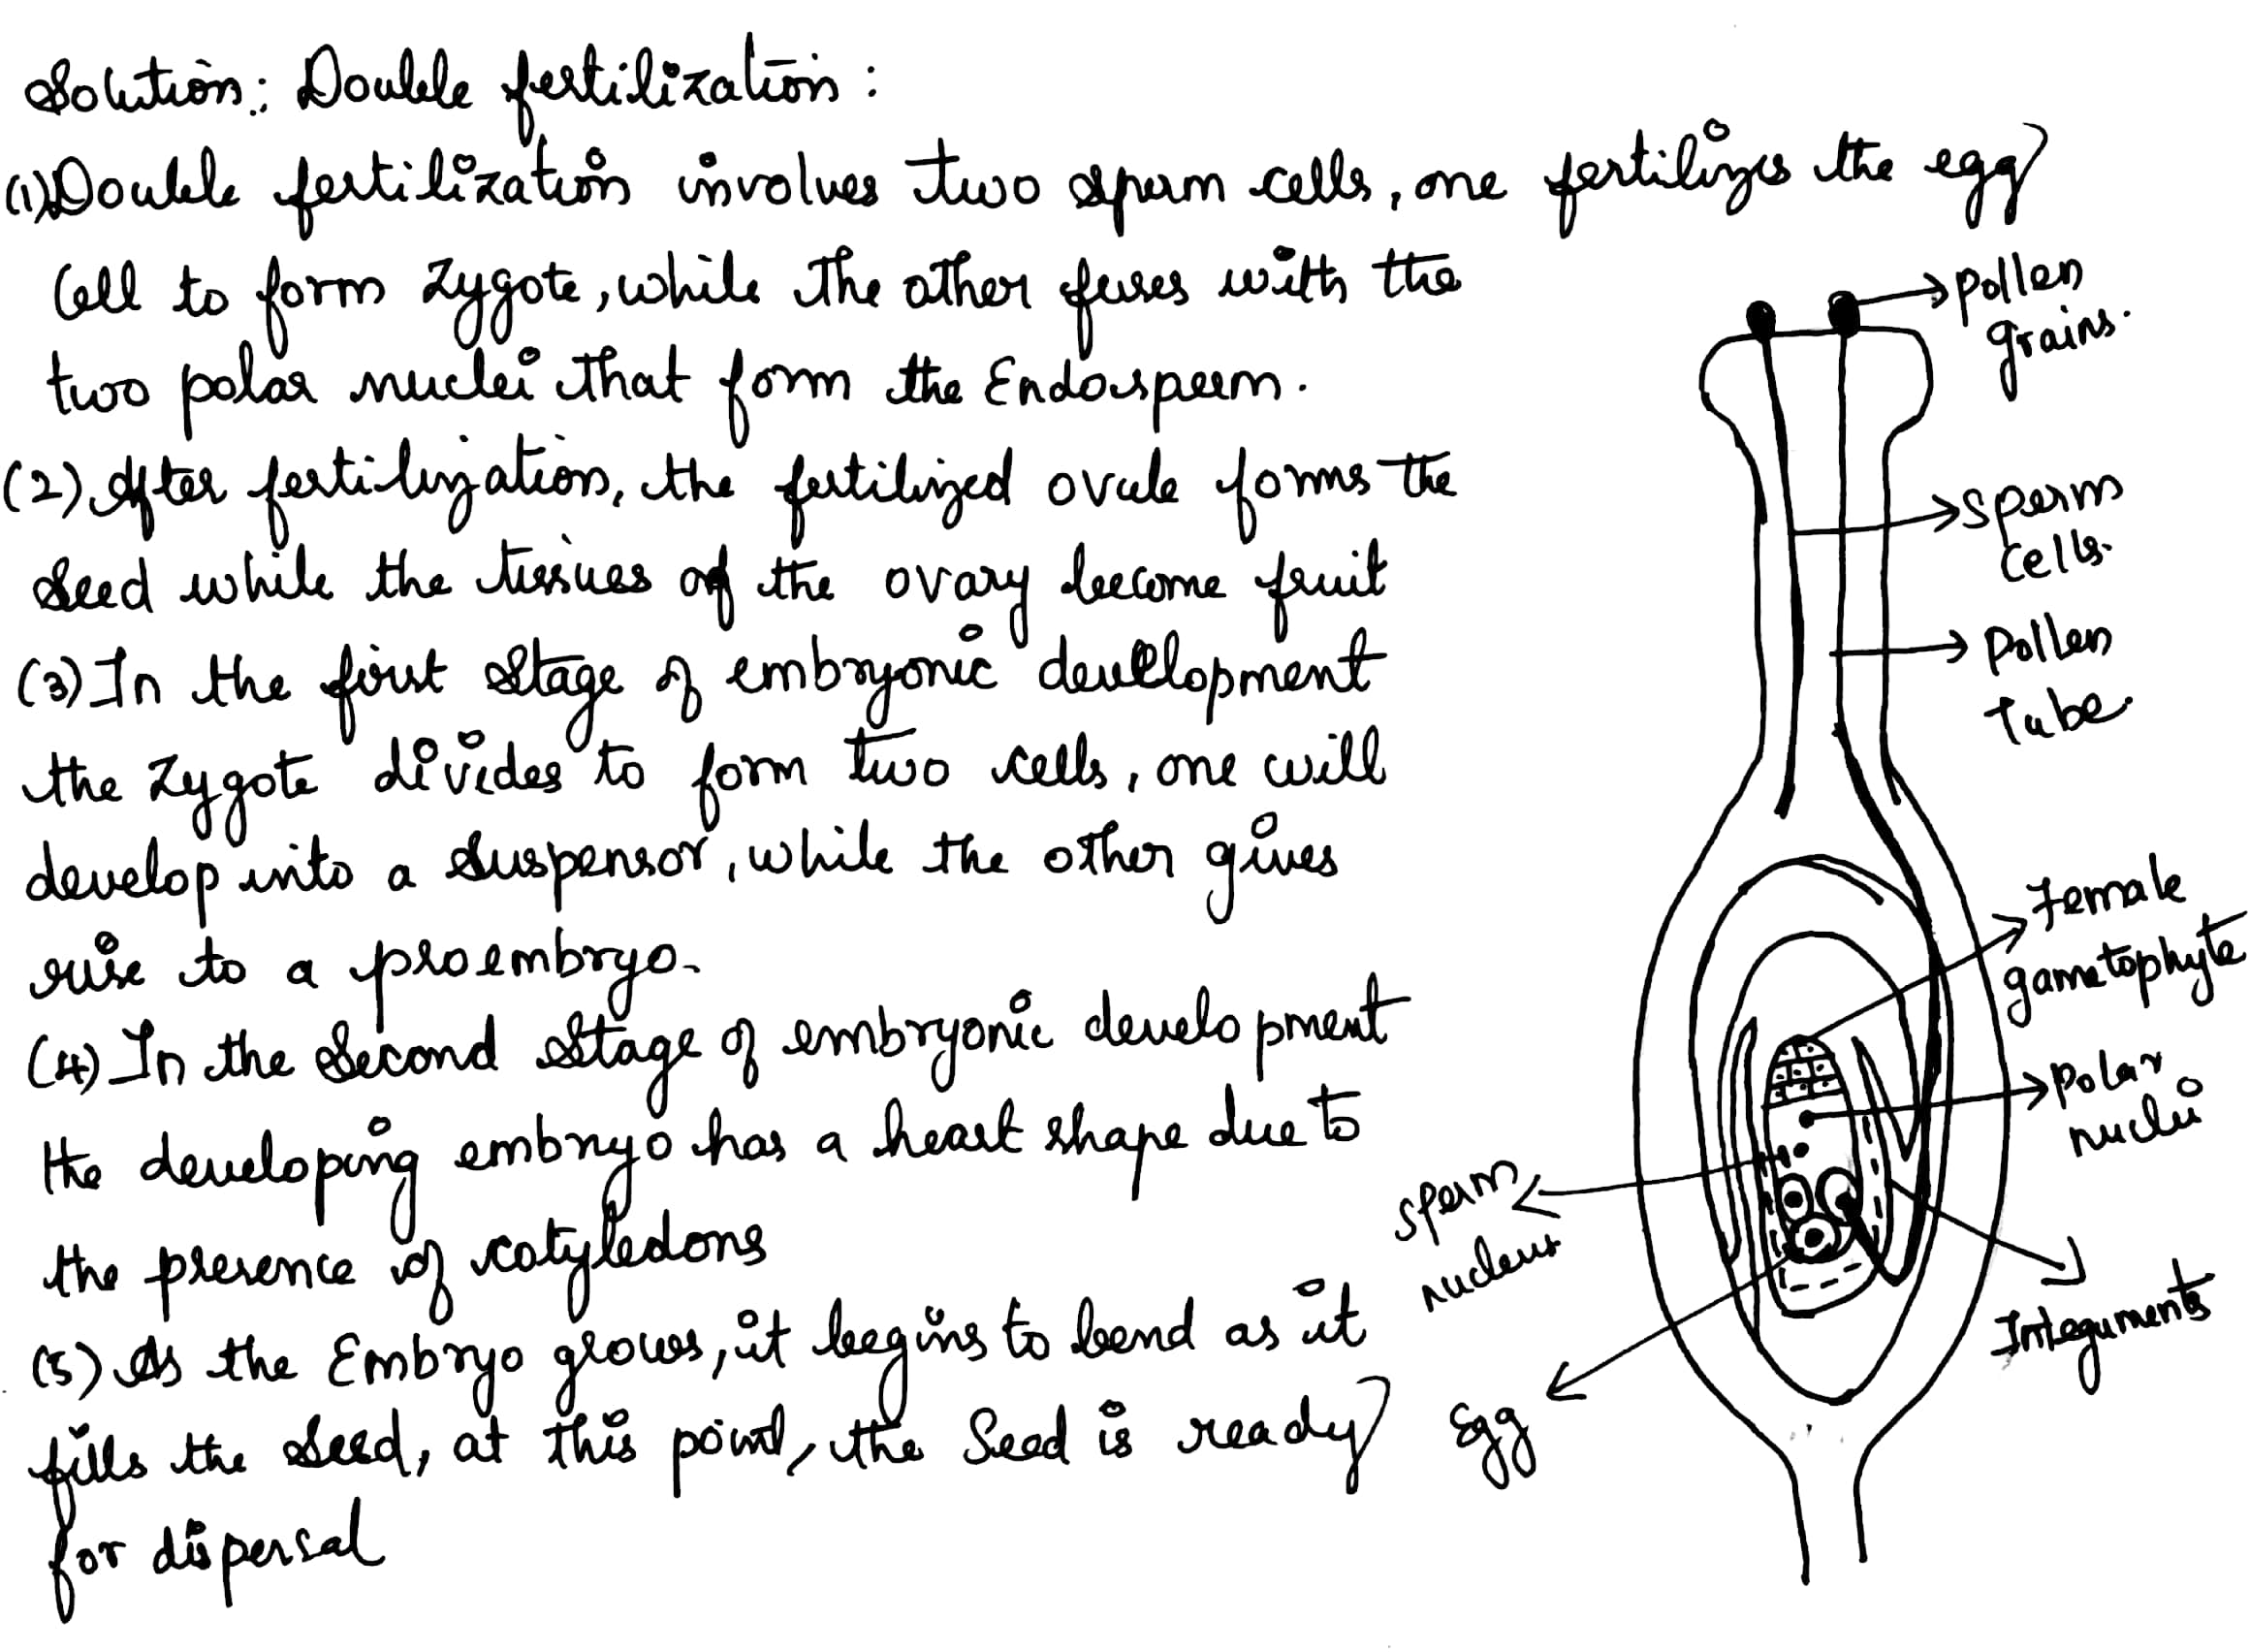 Solution: Double fertilization:
(1) Double fertilization involves two sperm cells, one fertilizes the egg
Cell to form zygote, while the other fuses with the
two polar nuclei that form the Endosperm.
(2) After fertilization, the fertilized ovule forms the
Seed while the tissues of the ovary become fruit
(3) In the first stage of embryonic development
the zygote divides to form two cells, one will
develop into a suspensor, while the other gives
rise to a proembryo.
(4) In the second stage of embryonic development
the developing embryo has a heart shape due to
the presence of cotyledons
(5) As the Embryo grows, it begins to bend as it
fills the seed, at this point, the Seed is ready
for dispersal
pollen
grains.
sperm
cells.
Pollen
tube.
Female
gametophyte
polar
nuclei
sperm
nucleus
Integuments
Egg